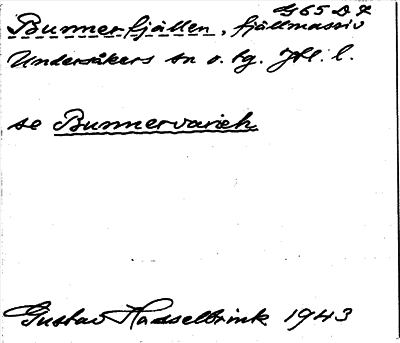 G65 D7
Bunnerfjällen, fjällmassiv
Undersåkers sn o. tg. Jtl. l.
se Bunnervarieh
Gustav Hasselbrink 1943